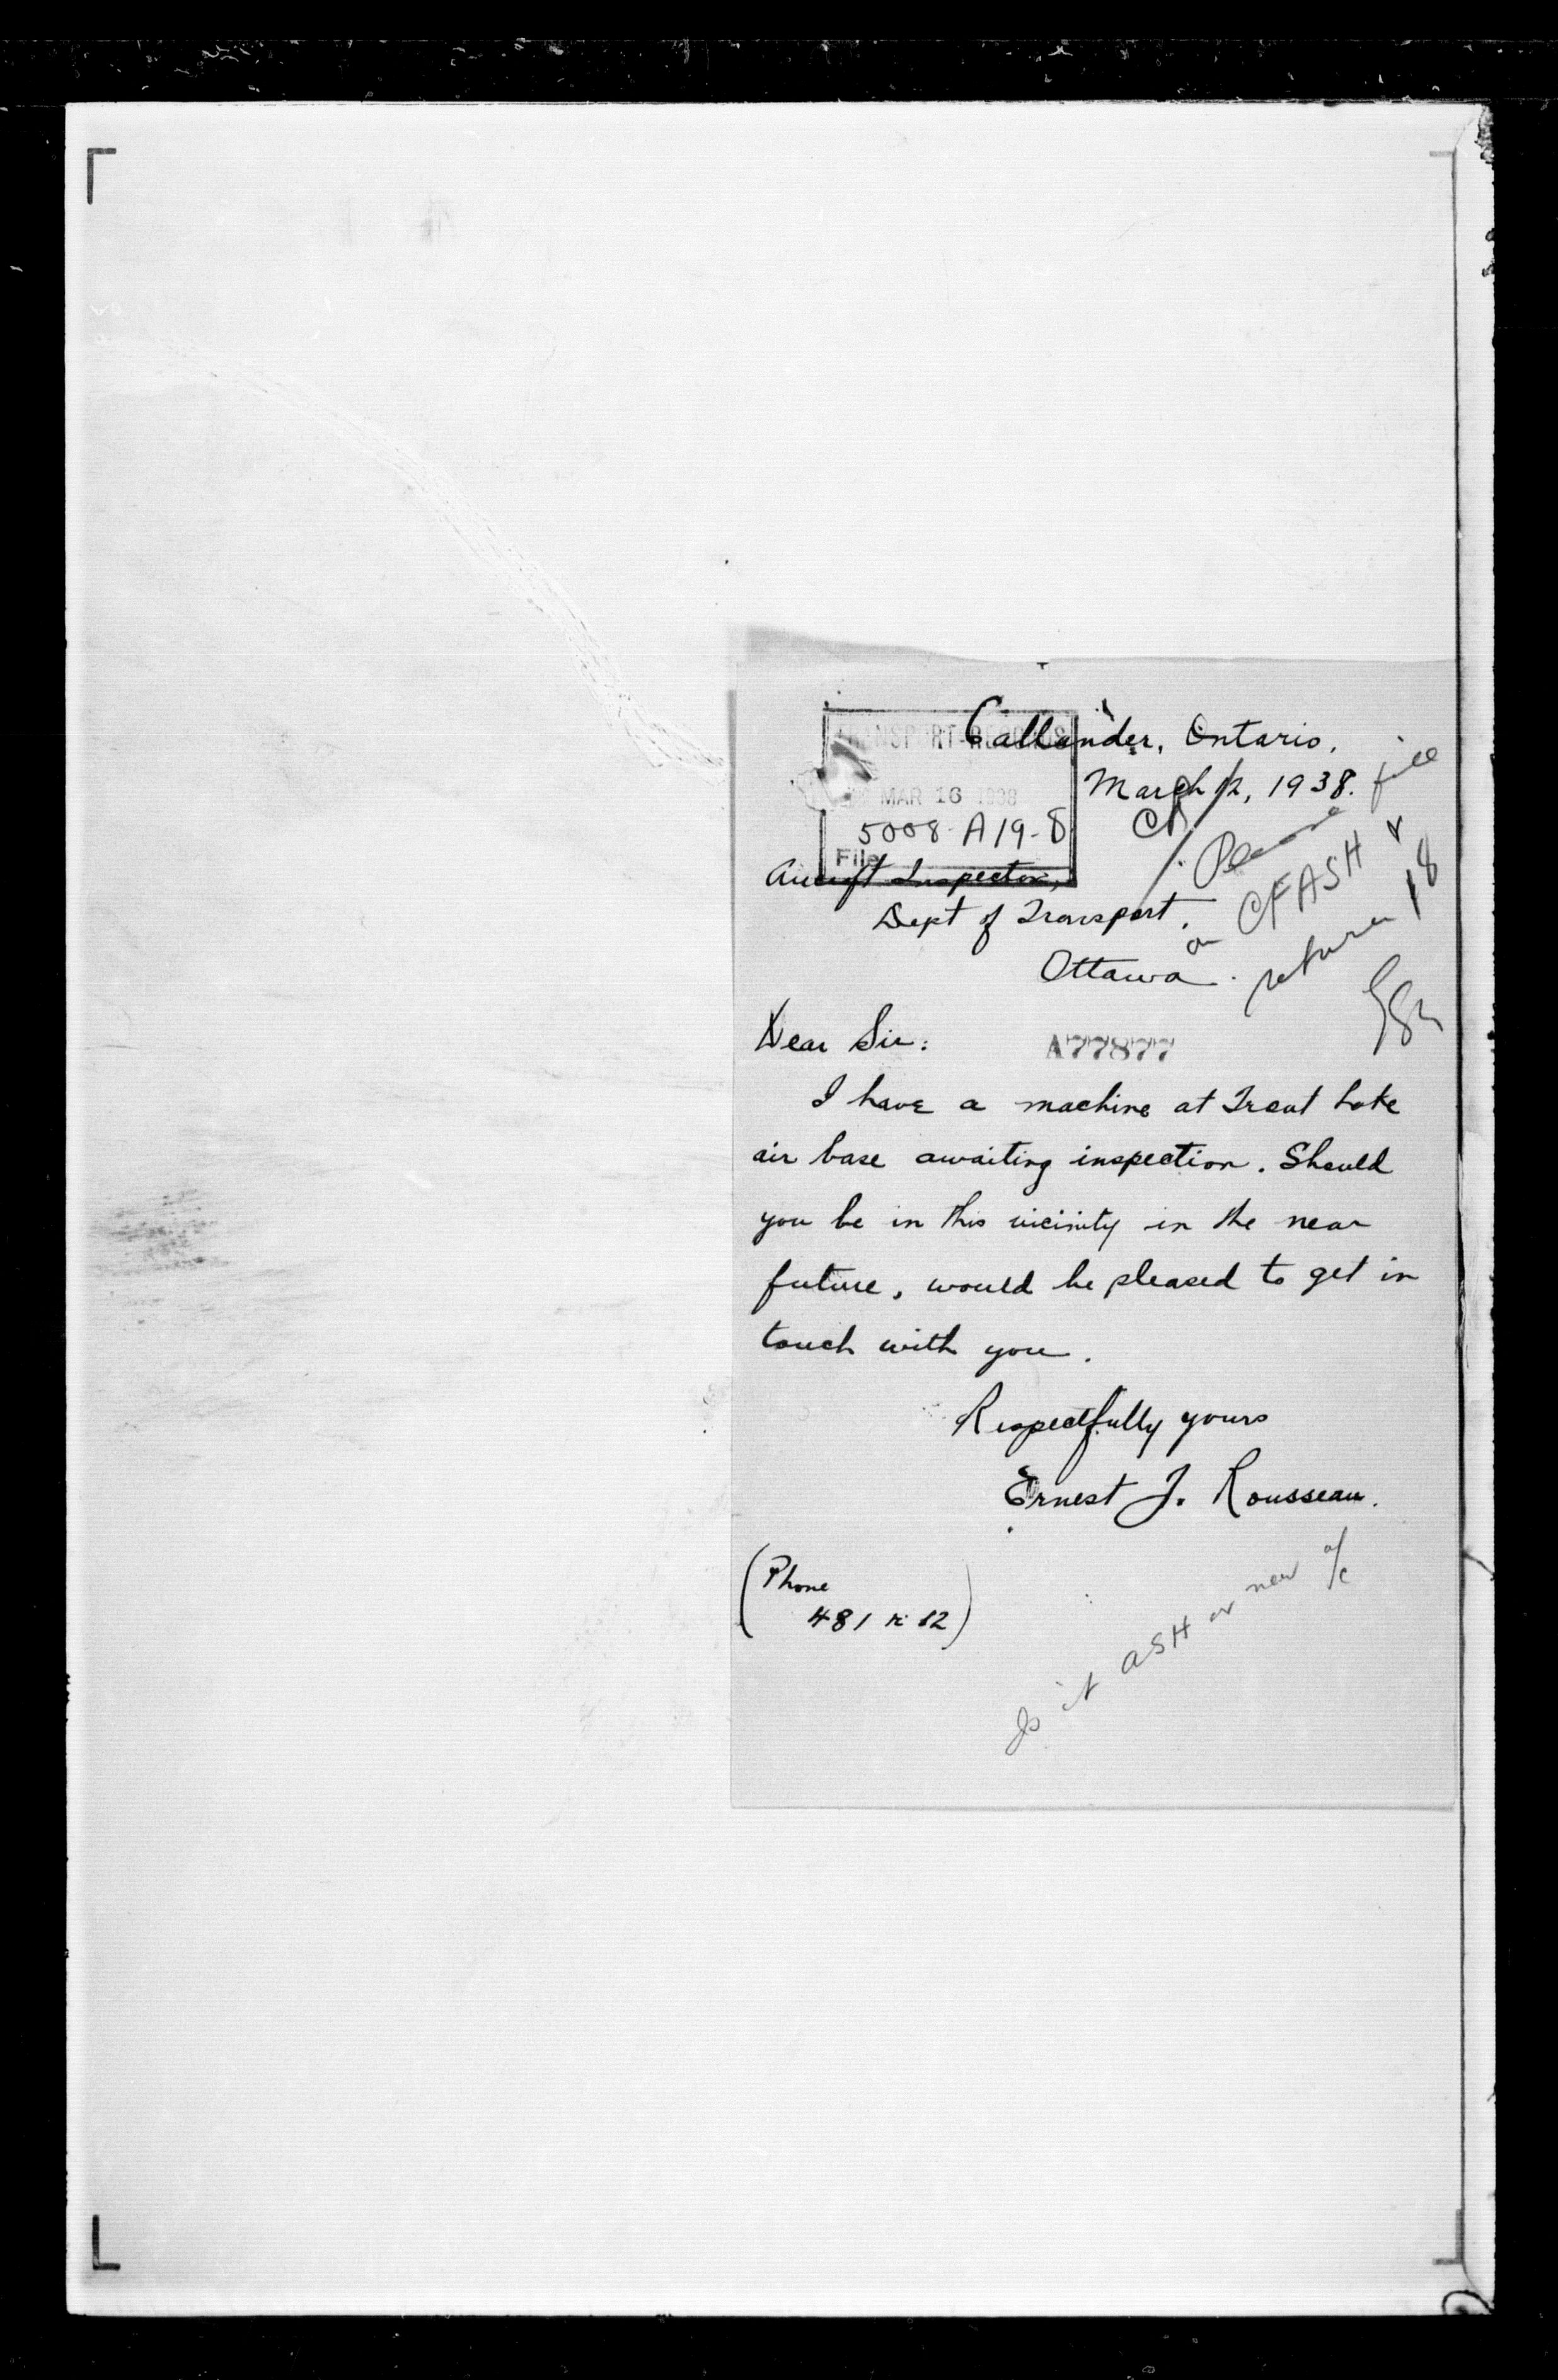 Callander, Ontario.
TRANSPORT-RECORDS
March 12, 1938.
MAR 16 1938
5008-A19-8
File
CR
Please file
on CFASH &
return 18
Aircraft Inspector,
Dept of Transport,
Ottawa.
Dear Sir:
A77877
I have a machine at Trout Lake
air base awaiting inspection. Should
you be in this vicinity in the near
future, would be pleased to get in
touch with you.
Respectfully yours
Ernest J. Rousseau.
(Phone
481 r 12)
Is it ASH or new a/c